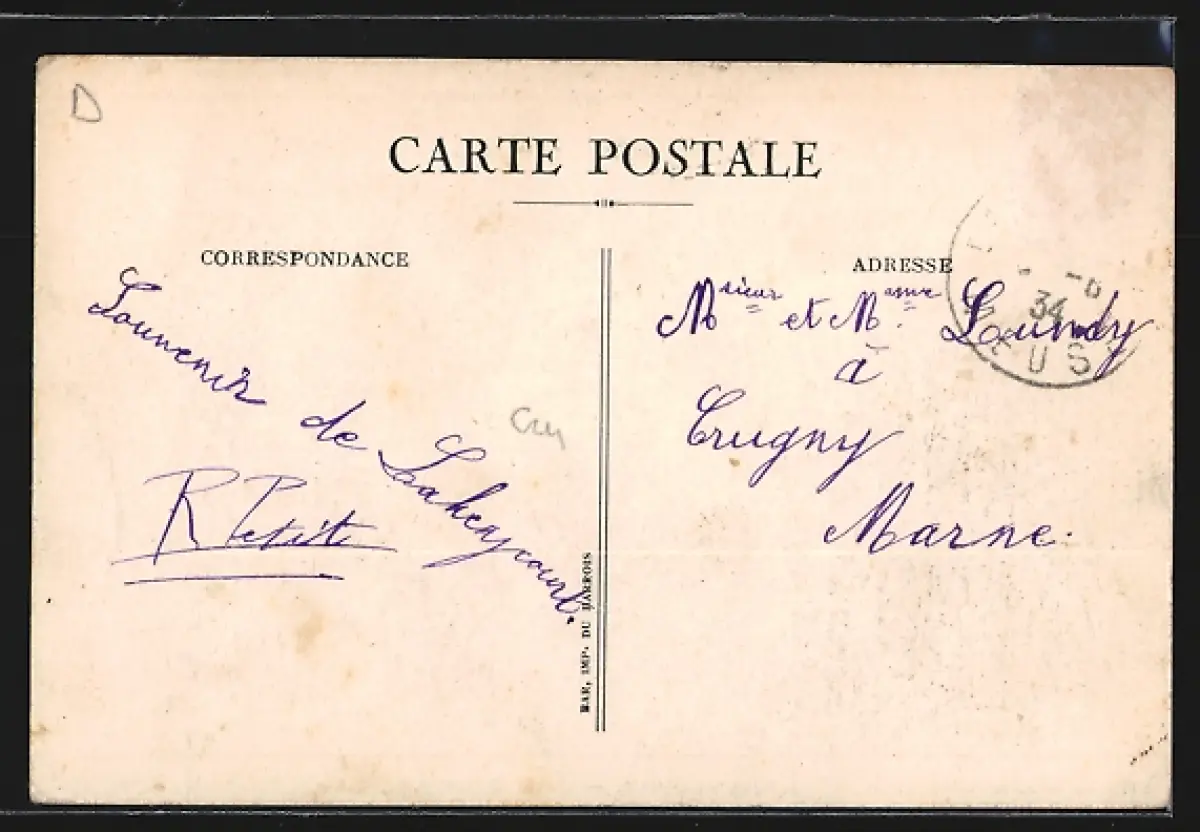 D
CARTE POSTALE
CORRESPONDANCE
Souvenir
de
Laheycourt.
R Petit
BAR, IMP. DU BARROIS
ADRESSE
Msieur et Mame Lundy
à
Crugny
Marne.
34
EUS